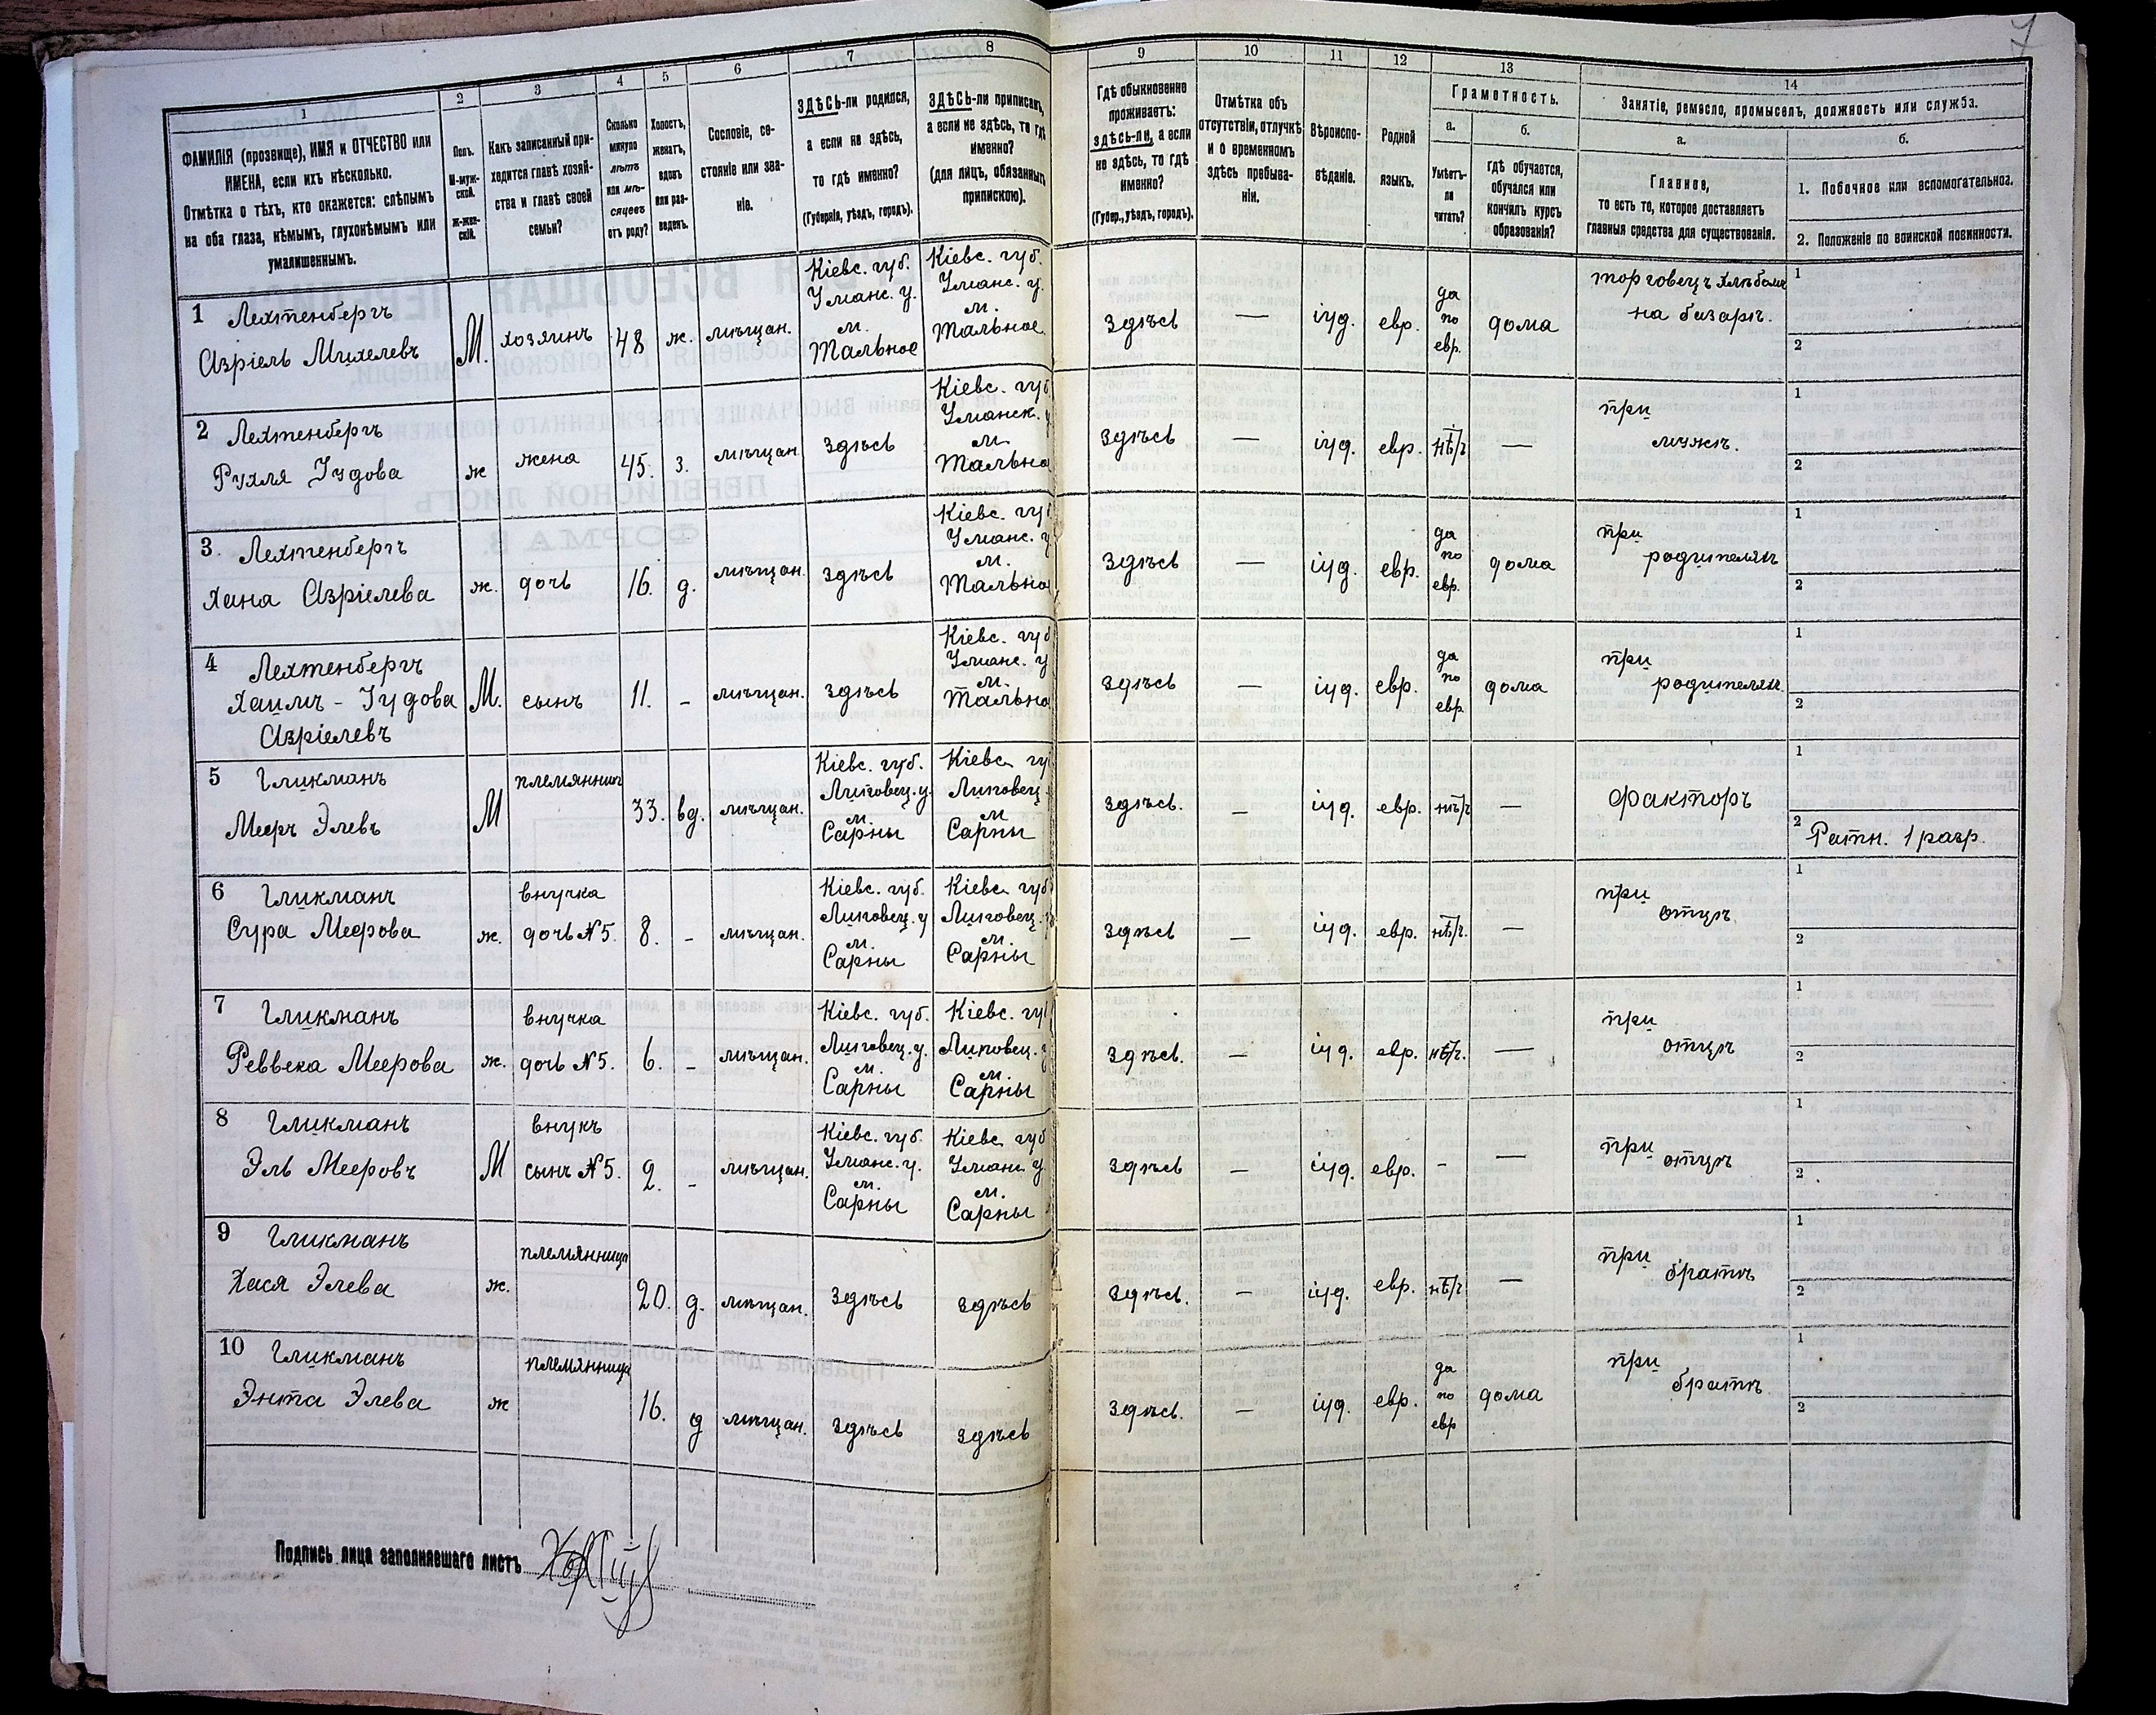 7
1 2 3 4 5 6 7 8 9 10 11 12 13 14
ФАМИЛІЯ (прозвище), ИМЯ и ОТЧЕСТВО или
ИМЕНА, если ихъ нѣсколько.
Отмѣтка о тѣхъ, кто окажется: слѣпымъ
на оба глаза, нѣмымъ, глухонѣмымъ или
умалишеннымъ.
Полъ.
М-муж-
ской.
Ж-жен-
скій.
Какъ записанный при-
ходится главѣ хозяй-
ства и главѣ своей
семьи?
Сколько
минуло
лѣтъ
или мѣ-
сяцевъ
отъ роду?
Холостъ,
женатъ,
вдовъ
или раз-
веденъ.
Сословіе, со-
стояніе или зва-
ніе.
ЗДѢСЬ-ли родился,
а если не здѣсь,
то гдѣ именно?
(Губернія, уѣздъ, городъ).
ЗДѢСЬ-ли приписанъ,
а если не здѣсь, то гдѣ
именно?
(для лицъ, обязанныхъ
припискою).
Гдѣ обыкновенно
проживаетъ:
здѣсь-ли, а если
не здѣсь, то гдѣ
именно?
(Губер., уѣздъ, городъ).
Отмѣтка объ
отсутствіи, отлучкѣ
и о временномъ
здѣсь пребыва-
ніи.
Вѣроиспо-
вѣданіе.
Родной
языкъ.
Грамотность.
а.
Умѣетъ-
ли
читать?
б.
гдѣ обучается,
обучался или
кончилъ курсъ
образованія?
Занятіе, ремесло, промыселъ, должность или служба.
а.
Главное,
то есть то, которое доставляетъ
главныя средства для существованія.
б.
1. Побочное или вспомогательное.
2. Положеніе по воинской повинности.
1 Лехтенбергъ
Азріель Михелевъ
М. хозяинъ 48 ж. мѣщан.
Кіевс. губ.
Уманс. у.
м.
Тальное
Кіевс. губ.
Уманс. у.
м.
Тальное
здѣсь — іуд. евр.
да
по
евр.
дома
торговецъ хлѣбомъ
на базарѣ.
1
2
2 Лехтенбергъ
Рухля Іудова
ж жена 45. з. мѣщан здѣсь
Кіевс. губ
Уманск. у
м
Тально
здѣсь — іуд. евр. нѣ/г —
при
мужѣ.
1
2
3. Лехтенбергъ
Хана Азріелева
ж. дочь 16. д. мѣщан. здѣсь
Кіевс. губ
Уманс. у
м.
Тально
здѣсь — іуд. евр.
да
по
евр.
дома
при
родителяхъ
1
2
4 Лехтенбергъ
Хаимъ - Іудова
Азріелевъ
М. сынъ 11. - мѣщан. здѣсь
Кіевс. губ
Уманс. у
м.
Тально
здѣсь — іуд. евр.
да
по
евр.
дома
при
родителях.
1
2
5 Гликманъ
Мееръ Элевъ
М племянникъ 33. вд. мѣщан.
Кіевс. губ.
Липовец. у.
м.
Сарны
Кіевс губ
Липовец.
м
Сарны
здѣсь. — іуд. евр. нѣ/г —
факторъ
1
2 Ратн. 1 разр.
6 Гликманъ
Сура Меерова
ж. внучка
дочь №5. 8. - мѣщан.
Кіевс. губ.
Липовец. у
м.
Сарны
Кіевс губ
Липовец. у
м.
Сарны
здѣсь — іуд. евр. нѣ/г. —
при
отцѣ
1
2
7 Гликманъ
Реввека Меерова
ж. внучка
дочь №5. 6. - мѣщан.
Кіевс. губ.
Липовец. у.
м.
Сарны
Кіевс. губ
Липовец. у
м.
Сарны
здѣсь. — іуд. евр. нѣ/г. —
при
отцѣ
1
2
8 Гликманъ
Эль Мееровъ
М внукъ
сынъ №5. 2. - мѣщан.
Кіевс. губ.
Уманс. у.
м.
Сарны
Кіевс губ
Уманс у.
м.
Сарны
здѣсь — іуд. евр. - —
при
отцѣ
1
2
9 Гликманъ
Хася Элева
ж. племянница 20. д. мѣщан. здѣсь здѣсь
здѣсь. — іуд. евр. нѣ/г —
при
братѣ
1
2
10 Гликманъ
Энта Элева
ж племянница 16. д мѣщан. здѣсь здѣсь
здѣсь. — іуд. евр.
да
по
евр
дома
при
братѣ
1
2
Подпись лица заполнявшаго листъ